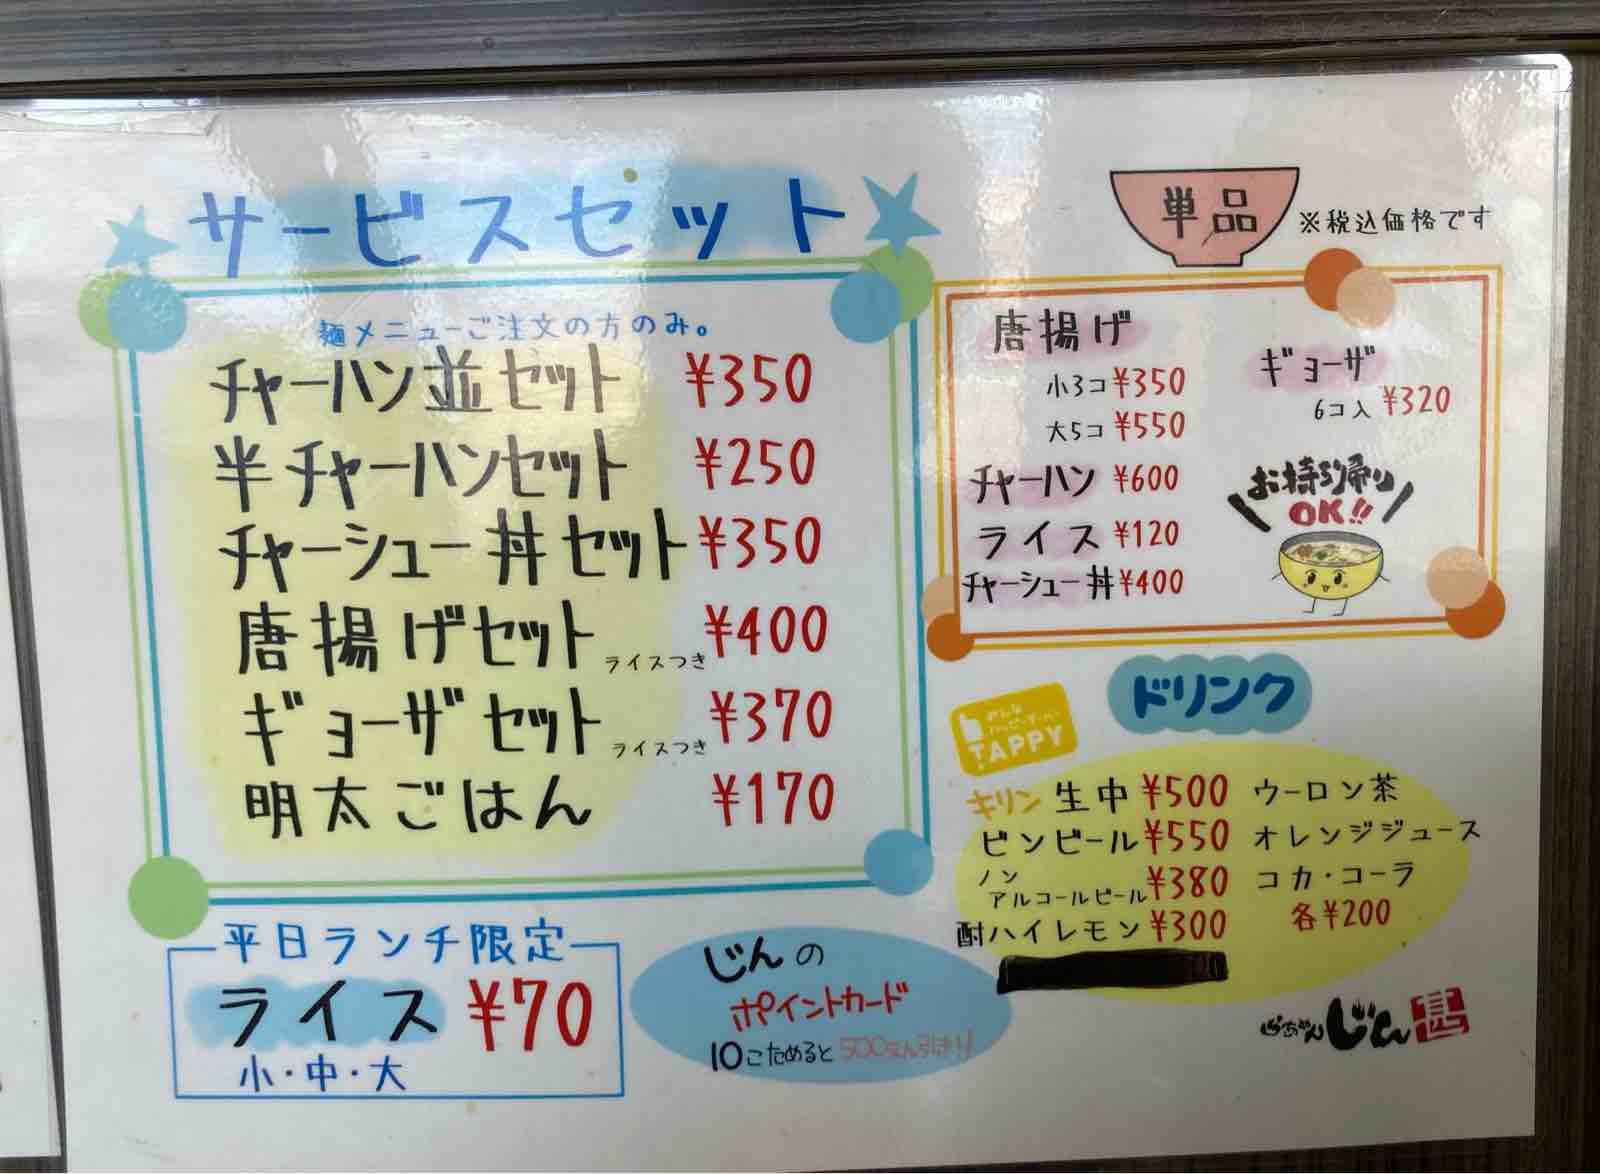 サービスセット
麺メニューご注文の方のみ。
チャーハン並セット ¥350
半チャーハンセット ¥250
チャーシュー丼セット ¥350
唐揚げセット ライスつき ¥400
ギョーザセット ライスつき ¥370
明太ごはん ¥170
平日ランチ限定
ライス ¥70
小・中・大
じんの
ポイントカード
10こためると500えん引き!!
単品
※税込価格です
唐揚げ
小3コ ¥350
大5コ ¥550
チャーハン ¥600
ライス ¥120
チャーシュー丼 ¥400
ギョーザ
6コ入 ¥320
お持ち帰り
OK!!
ドリンク
TAPPY
キリン 生中 ¥500
ビンビール ¥550
ノン
アルコールビール ¥380
酎ハイレモン ¥300
ウーロン茶
オレンジジュース
コカ・コーラ
各¥200
らぁめん じん